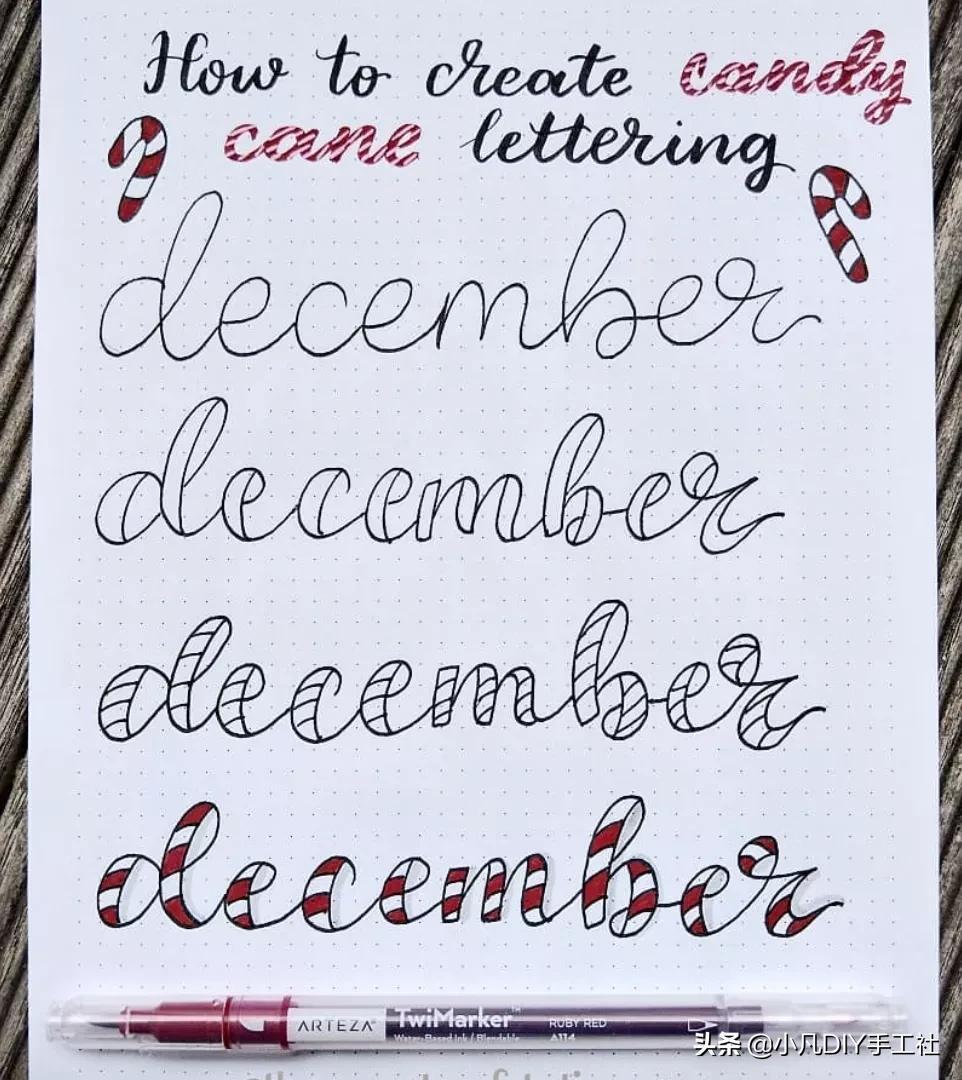 How to create candy
cane lettering
december
december
december
december
ARTEZA TwiMarker™ RUBY RED
Water-Based Ink / Blendable A114
头条 @小凡DIY手工社